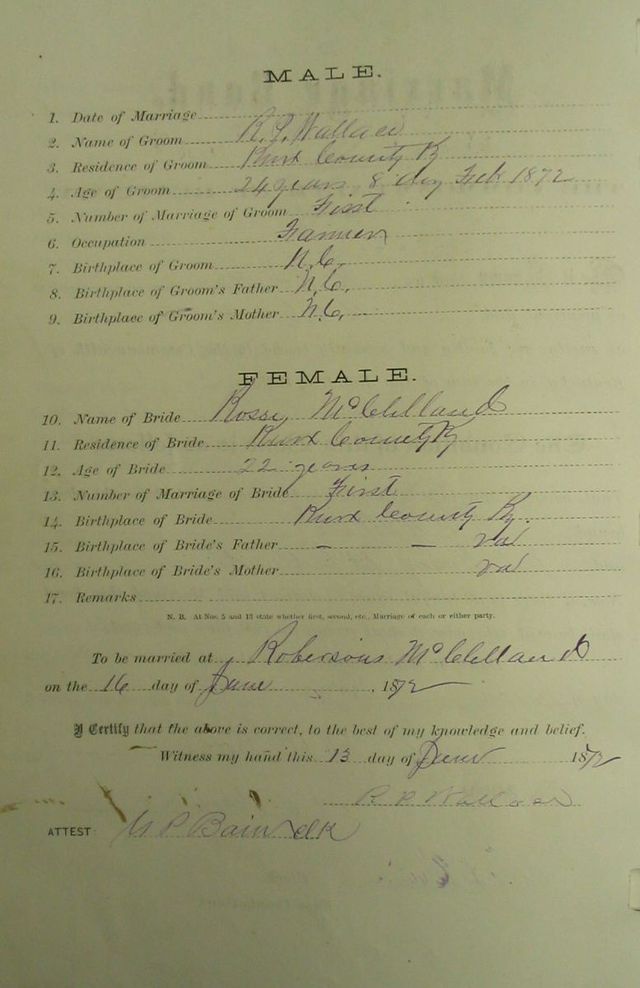 MALE.
1. Date of Marriage
2. Name of Groom R. P. Wallace
3. Residence of Groom County Ky
4. Age of Groom 24 years 8 day Feb 1872
5. Number of Marriage of Groom First
6. Occupation Farmer
7. Birthplace of Groom N.C.
8. Birthplace of Groom's Father N.C.
9. Birthplace of Groom's Mother N.C.
FEMALE.
10. Name of Bride Rossey McClelland
11. Residence of Bride County Ky
12. Age of Bride 22 years
13. Number of Marriage of Bride First
14. Birthplace of Bride County Ky.
15. Birthplace of Bride's Father — —
16. Birthplace of Bride's Mother
17. Remarks
N. B. At Nos. 5 and 13 state whether first, second, etc., Marriage of each or either party.
To be married at Robersons McClelland
on the 16 day of June, 1872
I Certify that the above is correct, to the best of my knowledge and belief.
Witness my hand this 13 day of June 1872
R P Wallace
ATTEST: Bain